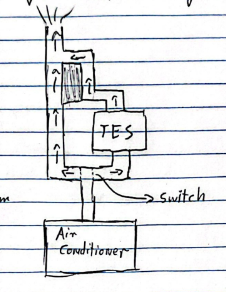 TES
switch
m
Air
Conditioner